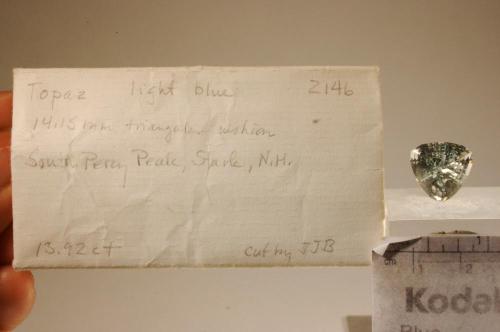 Topaz light blue 2146
14.15 mm triangular cushion
South Percy Peak, Stark, N.H.
13.92 ct cut by JJB
cm 1 2
Kodak